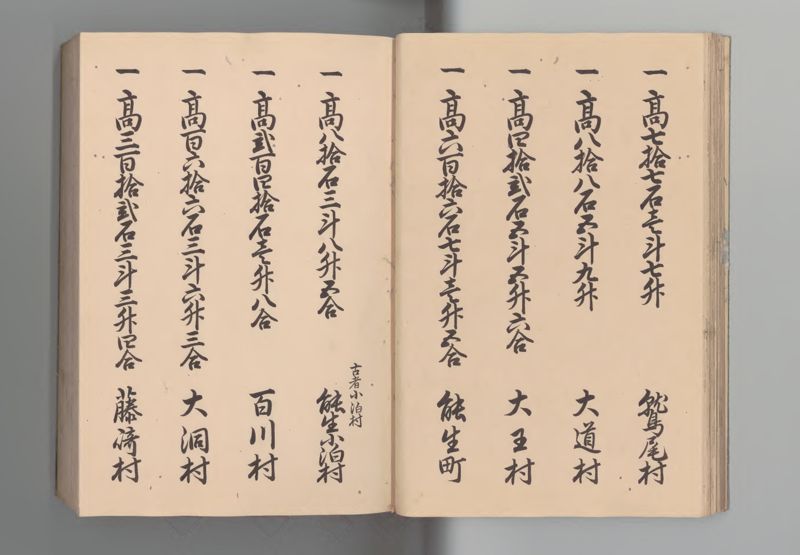 一 高七拾七石壱斗七升 鷲尾村
一 高八拾八石五斗九升 大道村
一 高四拾弐石五斗五升六合 大王村
一 高六百拾六石七斗壱升五合 能生町
古者小泊村
一 高八拾石三斗八升五合 能生小泊村
一 高弐百四拾石壱升八合 百川村
一 高百六拾六石三斗六升三合 大洞村
一 高三百拾弐石三斗三升四合 藤崎村